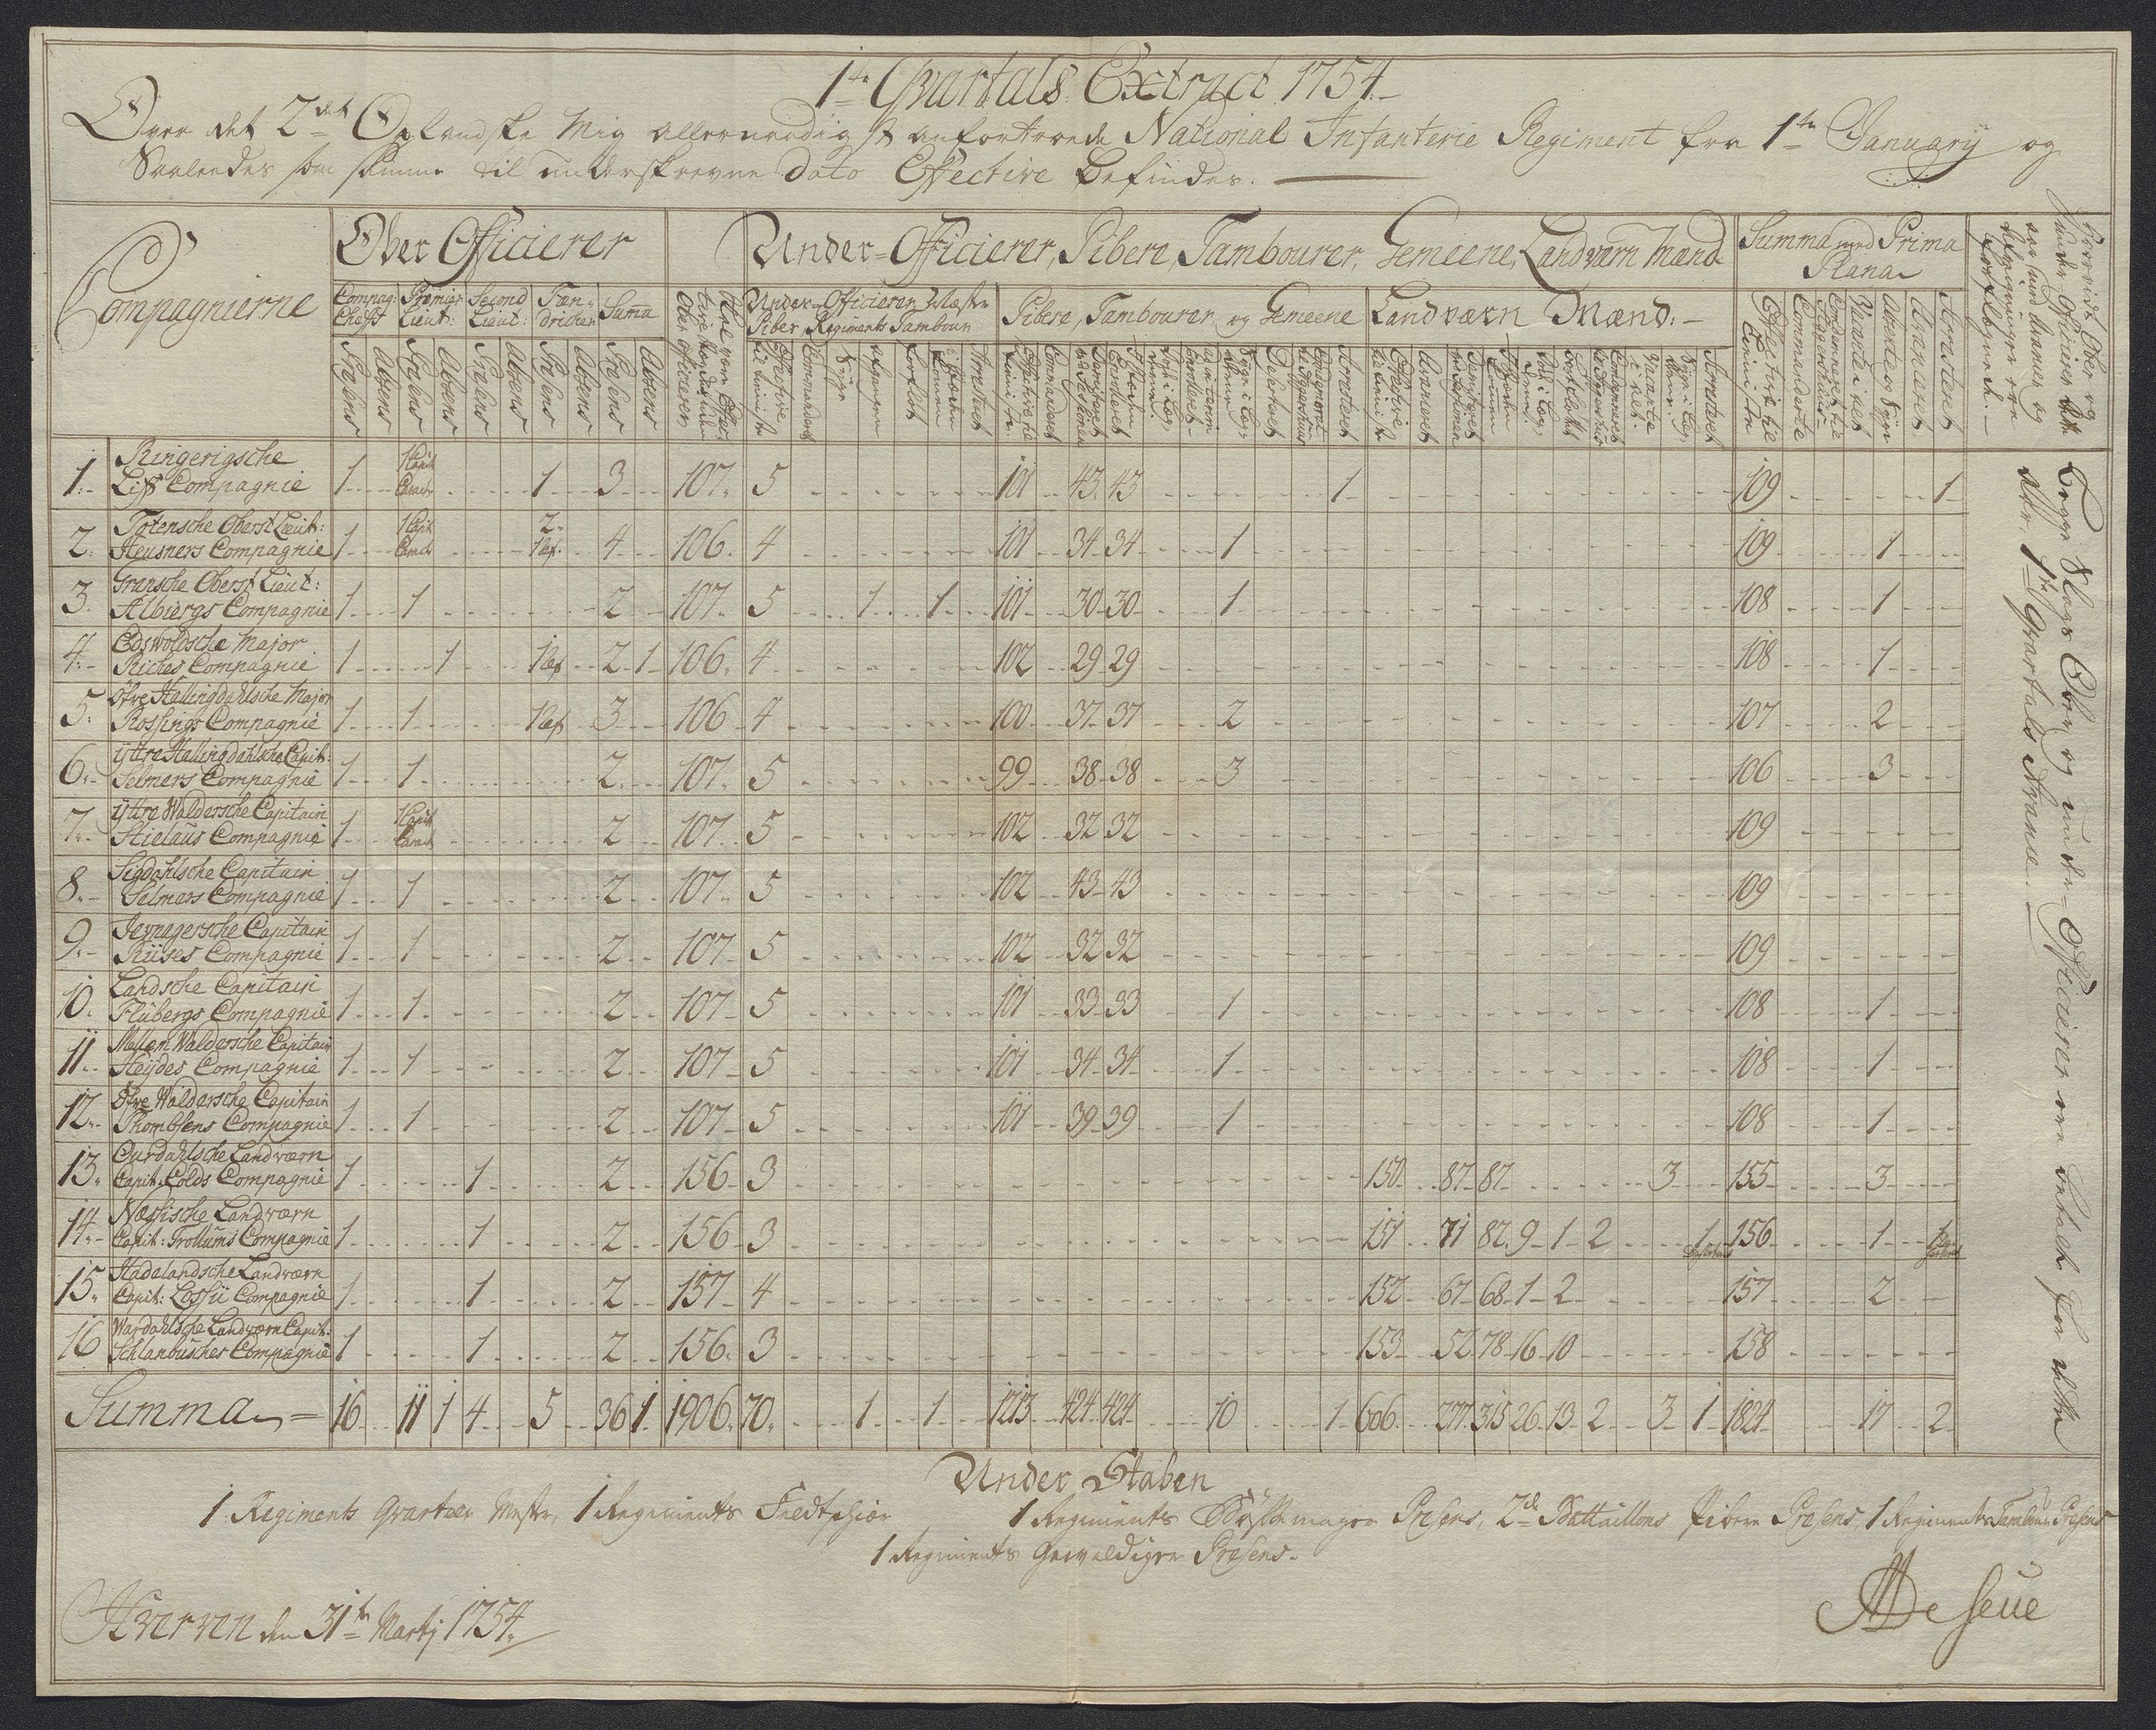 1te Qvartals Extract 1754.
Over det 2det Oplandske Mig allernaadigst anfortroede National Infanterie Regiment fra 1te January og
Saaledes som samme til underskrevne Dato Effective befindes.
Compagnierne
Ober Officierer
Under-Officierer, Pibere, Tambourer, Gemeene, Landværn Mænd
Summa med Prima Plana
Compag: Cheff
Premier Lieut:
Second Lieut:
Fæn-dricher
Suma
Under-Officierer
Piber, Regiments Tambour
Pibere, Tambourer og Gemeene
Landværn Mænd.
1. Ringerigsche Liff Compagnie 1 1 Capit Caract 1 3 107 5 101 43 43 1 109 1
2. Totensche Oberst Lieut: Heusners Compagnie 1 1 Capit Caract 2 4 106 4 101 34 34 1 109 1
3. Gransche Oberst Lieut: Albiergs Compagnie 1 1 2 107 5 1 1 101 30 30 1 108 1
4. Edswoldsche Major Riches Compagnie 1 1 2 1 106 4 102 29 29 108 1
5. Öfre Hallingdahlsche Major Rossings Compagnie 1 1 3 106 4 100 37 37 2 107 2
6. ÿttre Hallingdahlsche Capit: Selmers Compagnie 1 1 2 107 5 99 38 38 3 106 3
7. ÿttre Waldersche Capitain Stielaus Compagnie 1 1 Capit Caract 2 107 5 102 32 32 109
8. Sigdahlsche Capitain Selmers Compagnie 1 1 2 107 5 102 43 43 109
9. Jevnagersche Capitain Riises Compagnie 1 1 2 107 5 102 32 32 109
10. Landsche Capitain Flubergs Compagnie 1 1 2 107 5 101 33 33 1 108 1
11. Mellem Waldersche Capitain Heÿdes Compagnie 1 1 2 107 5 101 34 34 1 108 1
12. Öfre Waldersche Capitain Thomesens Compagnie 1 1 2 107 5 101 39 39 1 108 1
13. Ourdahlsche Landværn Capit: Colds Compagnie 1 1 2 156 3 150 87 87 3 155 3
14. Næssische Landværn Capit: Grollums Compagnie 1 1 2 156 3 151 71 82 9 1 2 1 156 1 1
15. Hadelandsche Landværn Capit: Lossii Compagnie 1 1 2 157 4 152 67 68 1 2 157 2
16 Wardahlsche Landværn Capit: Schlanbusches Compagnie 1 1 2 156 3 153 52 78 16 10 158
Summa = 16 11 1 4 5 36 1 1906 70 1 1 1213 424 424 10 1 606 277 315 26 13 2 3 1 1824 17 2
Begge Slags Ober og under-Officierer ere betalt for dette
Aars 1te Qvartals Avance.
Under Staben
1 Regiments Qvarteer Mester, 1 Regiments Feldtskiær
1 Regiments Presens, 2de Battaillons Pibere Presens, 1 Regiments Tambur Presens
1 Regiments Gevaldiger Presens.
Hverven den 31te Martij 1754.
De Seue